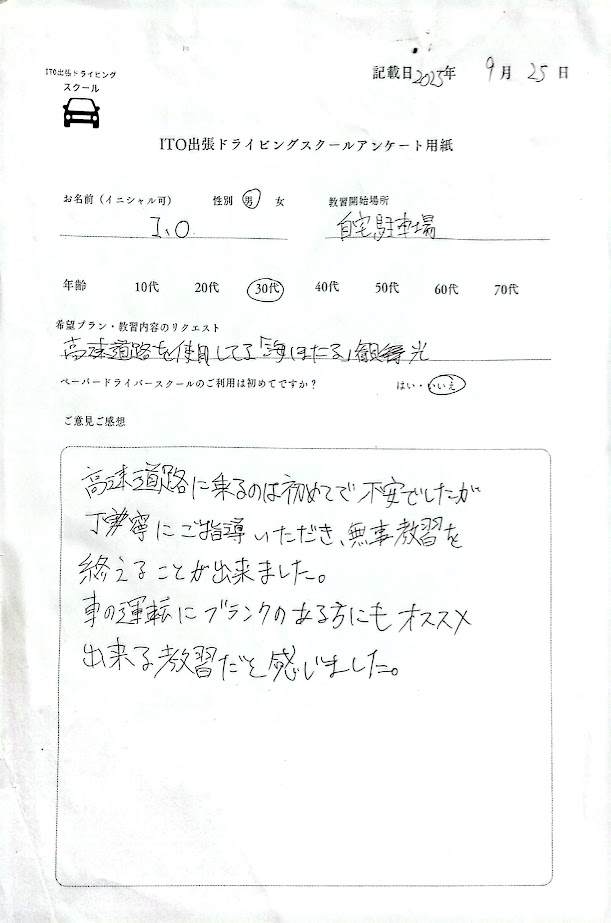 ITO出張ドライビング
スクール
記載日2025年 9月 25日
ITO出張ドライビングスクールアンケート用紙
お名前（イニシャル可） 性別 男 女 教習開始場所
I.O 自宅駐車場
年齢 10代 20代 30代 40代 50代 60代 70代
希望プラン・教習内容のリクエスト
高速道路を使用して「海ほたる」観光
ペーパードライバースクールのご利用は初めてですか？ はい・いいえ
ご意見ご感想
高速道路に乗るのは初めてで不安でしたが
丁寧にご指導いただき、無事教習を
終えることが出来ました。
車の運転にブランクのある方にもオススメ
出来る教習だと感じました。